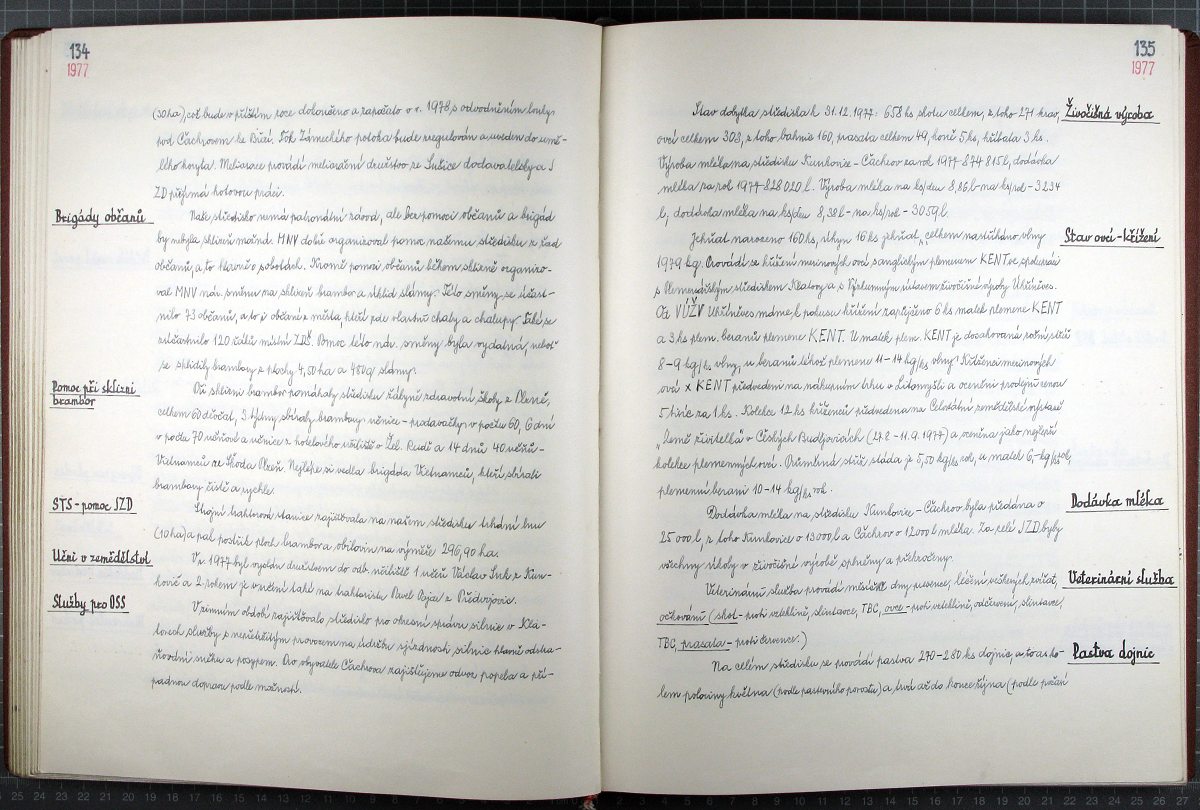 134
1977
(30 ha), což bude v příštím roce dokončeno a započato v r. 1978 s odvodněním louky
pod Čachrovem ke Bírči. Tok Zámeckého potoka bude zregulován a uveden do umě-
lého koryta. Meliorace provádí meliorační družstvo ze Sušice dodavatelsky a J
ZD přijímá hotovou práci.
Brigády občanů
Naše středisko nemá patronátní závod, ale bez pomoci občanů a brigád
by nebyla sklizeň možná. MNV dobře organizoval pomoc našemu středisku z řad
občanů, a to hlavně o sobotách. Kromě pomoci občanů během sklizně organizo-
val MNV nár. směnu na sklizeň brambor a úklid slámy. Této směny se účast-
nilo 73 občanů, a to i občané z města, kteří zde vlastní chaty a chalupy. Také se
zúčastnilo 120 žáků místní ZDŠ. Pomoc této nár. směny byla vydatná, neboť
se sklidily brambory z plochy 4,50 ha a 480 q slámy.
Pomoc při sklizni
brambor
Při sklizni brambor pomáhaly středisku žákyně zdravotní školy z Plzně,
celkem 60 děvčat, 3 týdny sbíraly brambory učnice - prodavačky v počtu 60, 6 dní
v počtu 70 učňové a učnice z hotelového učiliště v Žel. Rudě a 14 dnů 40 učňů -
Vietnamců ze Škoda Plzeň. Nejlépe si vedla brigáda Vietnamců, kteří sbírali
brambory čistě a rychle.
STS - pomoc JZD
Strojní traktorová stanice zajišťovala na našem středisku trhání lnu
(10 ha) a pak postřik ploch brambor a obilovin na výměře 296,90 ha.
Učni v zemědělství
V r. 1977 byl vyslán družstvem do odb. učiliště 1 učeň Václav Suk z Kun-
kovic a 2. rokem je v učení také na traktoristu Pavel Cajca z Předvojovic.
Služby pro OSS
V zimním období zajišťovalo středisko pro okresní správu silnic v Kla-
tovech služby s nepřetržitým provozem na údržbu sjízdnosti silnic hlavně odstra-
ňování sněhu a posypem. Pro obyvatele Čachrova zajišťujeme odvoz popela a pří-
padnou dopravu podle možností.
135
1977
Živočišná výroba
Stav dobytka střediska k 31. 12. 1977: 658 ks skotu celkem, z toho 271 krav,
ovcí celkem 303, z toho bahnic 160, prasata celkem 49, koně 5 ks, hříbata 3 ks.
Výroba mléka na středisku Kunkovice - Čachrov za rok 1977 - 874 815 l, dodávka
mléka za rok 1977 - 828 020 l. Výroba mléka na ks/den 8,86 l - na ks/rok - 3234
l, dodávka mléka na ks/den 8,38 l - na ks/rok - 3059 l.
Stav ovcí - křížení
Jehňat narozeno 160 ks, úhyn 16 ks jehňat, celkem nastříháno vlny
1979 kg. Provádí se křížení merinových ovcí s anglickým plemenem KENT ve spolupráci
s Plemenářským střediskem Klatovy a s Výzkumným ústavem živočišné výroby Uhříněves.
Od VÚŽV Uhříněves máme k pokusu křížení zapůjčeno 6 ks matek plemene KENT
a 3 ks plem. beranů plemene KENT. U matek plem. KENT je dosahovaná roční střiž
8-9 kg/ks vlny, u beranů téhož plemene 11-14 kg/ks vlny. Kříženci merinových
ovcí x KENT předvedeni na nákupním trhu v Litomyšli a oceněni prodejní cenou
5 tisíc za 1 ks. Kolekce 12 ks kříženců předvedena na Celostátní zemědělské výstavě
„Země živitelka" v Českých Budějovicích (27.8 - 11.9.1977) a oceněna jako nejlepší
kolekce plemenných ovcí. Průměrná střiž stáda je 5,50 kg/ks rok, a matek 6,- kg/ks rok,
plemenní berani 10-14 kg/ks rok.
Dodávka mléka
Dodávka mléka na středisku Kunkovice - Čachrov byla předána o
25 000 l, z toho Kunkovice o 13000 l a Čachrov o 12000 l mléka. Za celé JZD byly
všechny úkoly v živočišné výrobě splněny a překročeny.
Veterinární služba
Veterinární službu provádí měsíčně dny prevence, léčení veškerých zvířat,
očkování (skot - proti vzteklině, slintavce, TBC, ovce - proti vzteklině, odčervení, slintavce,
TBC, prasata - proti července.)
Pastva dojnic
Na celém středisku se provádí pastva 270-280 ks dojnic, a to asi ko-
lem poloviny května (podle pastevního porostu) a trvá až do konce října (podle počasí